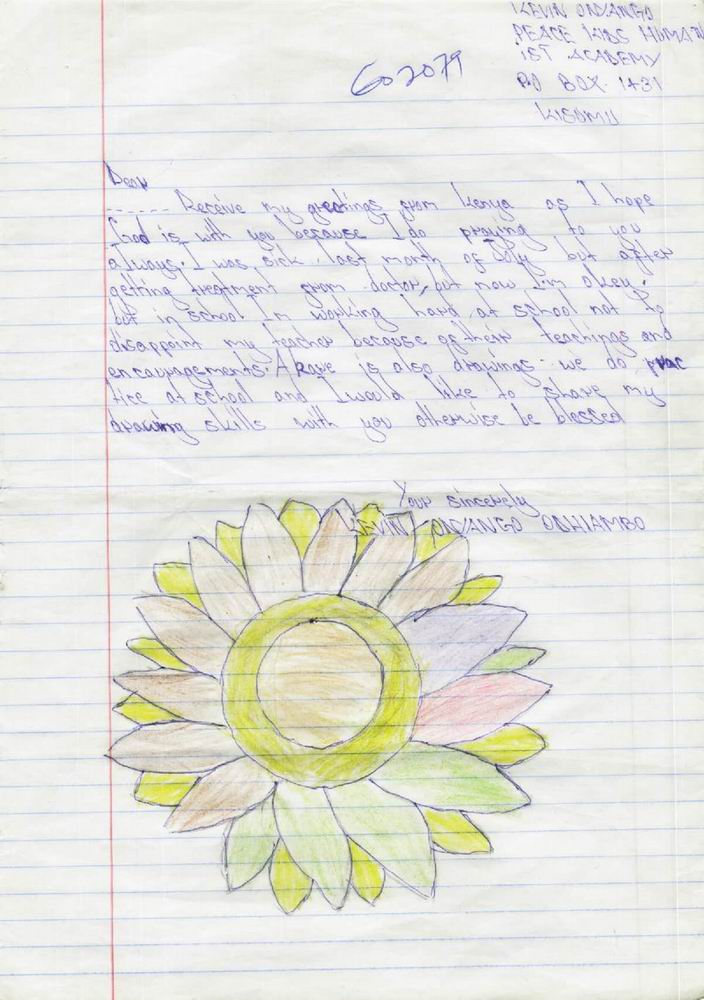 KEVIN ONYANGO
PEACE KIDS HUMAN
IST ACADEMY
PO BOX 1431
KISUMU
602079
Dear
------ Receive my greetings from kenya as I hope
God is with you because I do praying to you
always. I was sick last month of July but after
getting treatment from doctor, but now I'm okey.
but in school I'm working hard at school not to
disappoint my teacher because of their teachings and
encouragements. Above is also drawings we do prac
tice at school and I would like to share my
drawing skills with you otherwise be blessed
Your sincerely
KEVIN ONYANGO ODHIAMBO